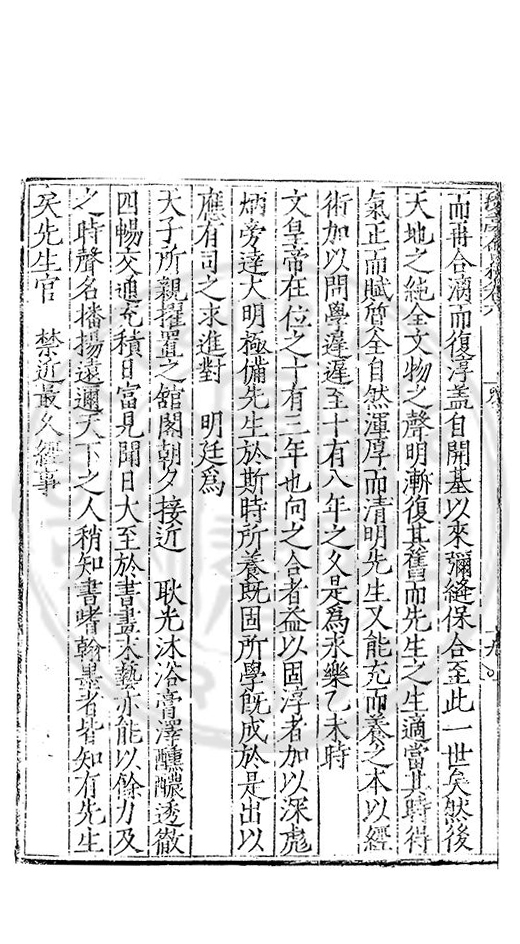 而再合漓而復淳盖自開基以來彌縫保合至此一世矣然後
天地之純全文物之聲明漸復其舊而先生之生適當其時得
氣正而賦質全自然渾厚而清明先生又能充而養之本以經
術加以問學遲遲至十有八年之久是爲永樂乙未時
文皇帝在位之十有三年也向之合者益以固淳者加以深彪
炳旁達大明極備先生於斯時所養既固所學既成於是出以
應有司之求進對　明廷爲
天子所親擢置之舘閣朝夕接近　耿光沐浴膏澤醺醲透徹
四暢交通充積日富見聞日大至於書畫末藝亦能以餘力及
之時聲名播揚遠邇天下之人稍知書嗜翰墨者皆知有先生
矣先生官　禁近最久經事